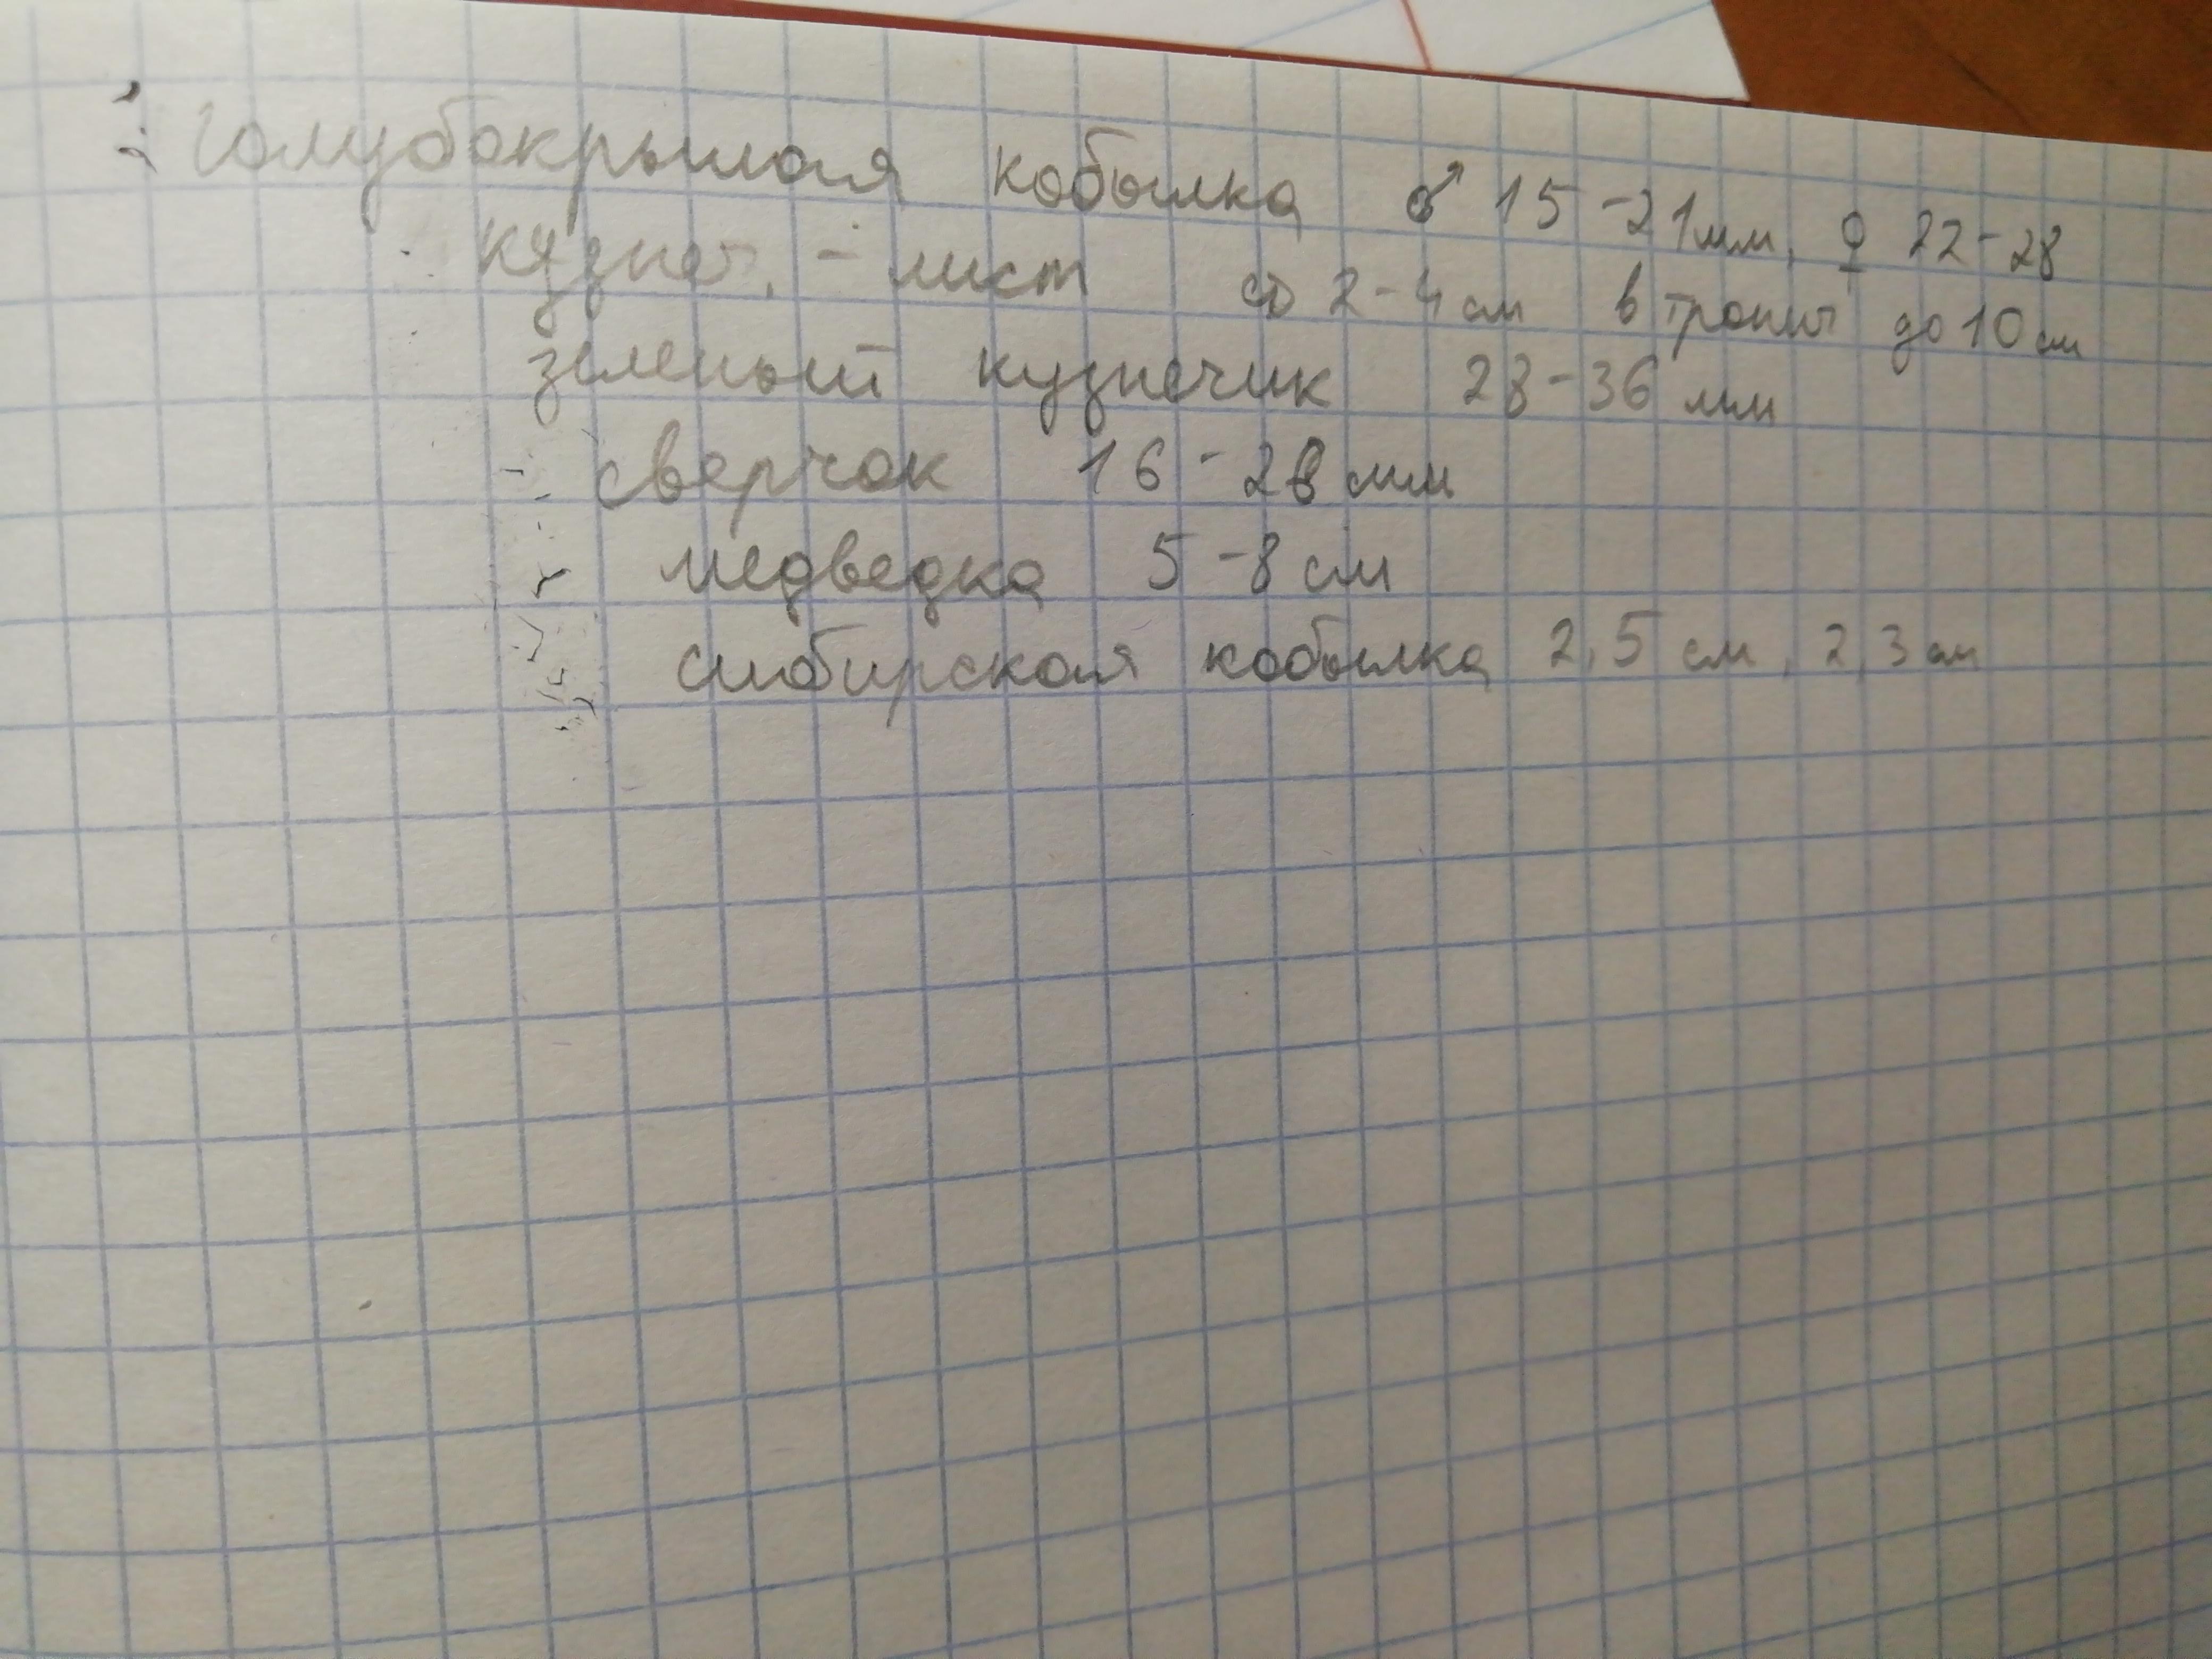 голубокрылая кобылка ♂ 15-21мм, ♀ 22-28
кузнеч. - лист 2-4 см в тропич до 10 см
зеленый кузнечик 28-36 мм
сверчок 16-26 мм
медведка 5-8 см
сибирская кобылка 2,5 см, 2,3 см